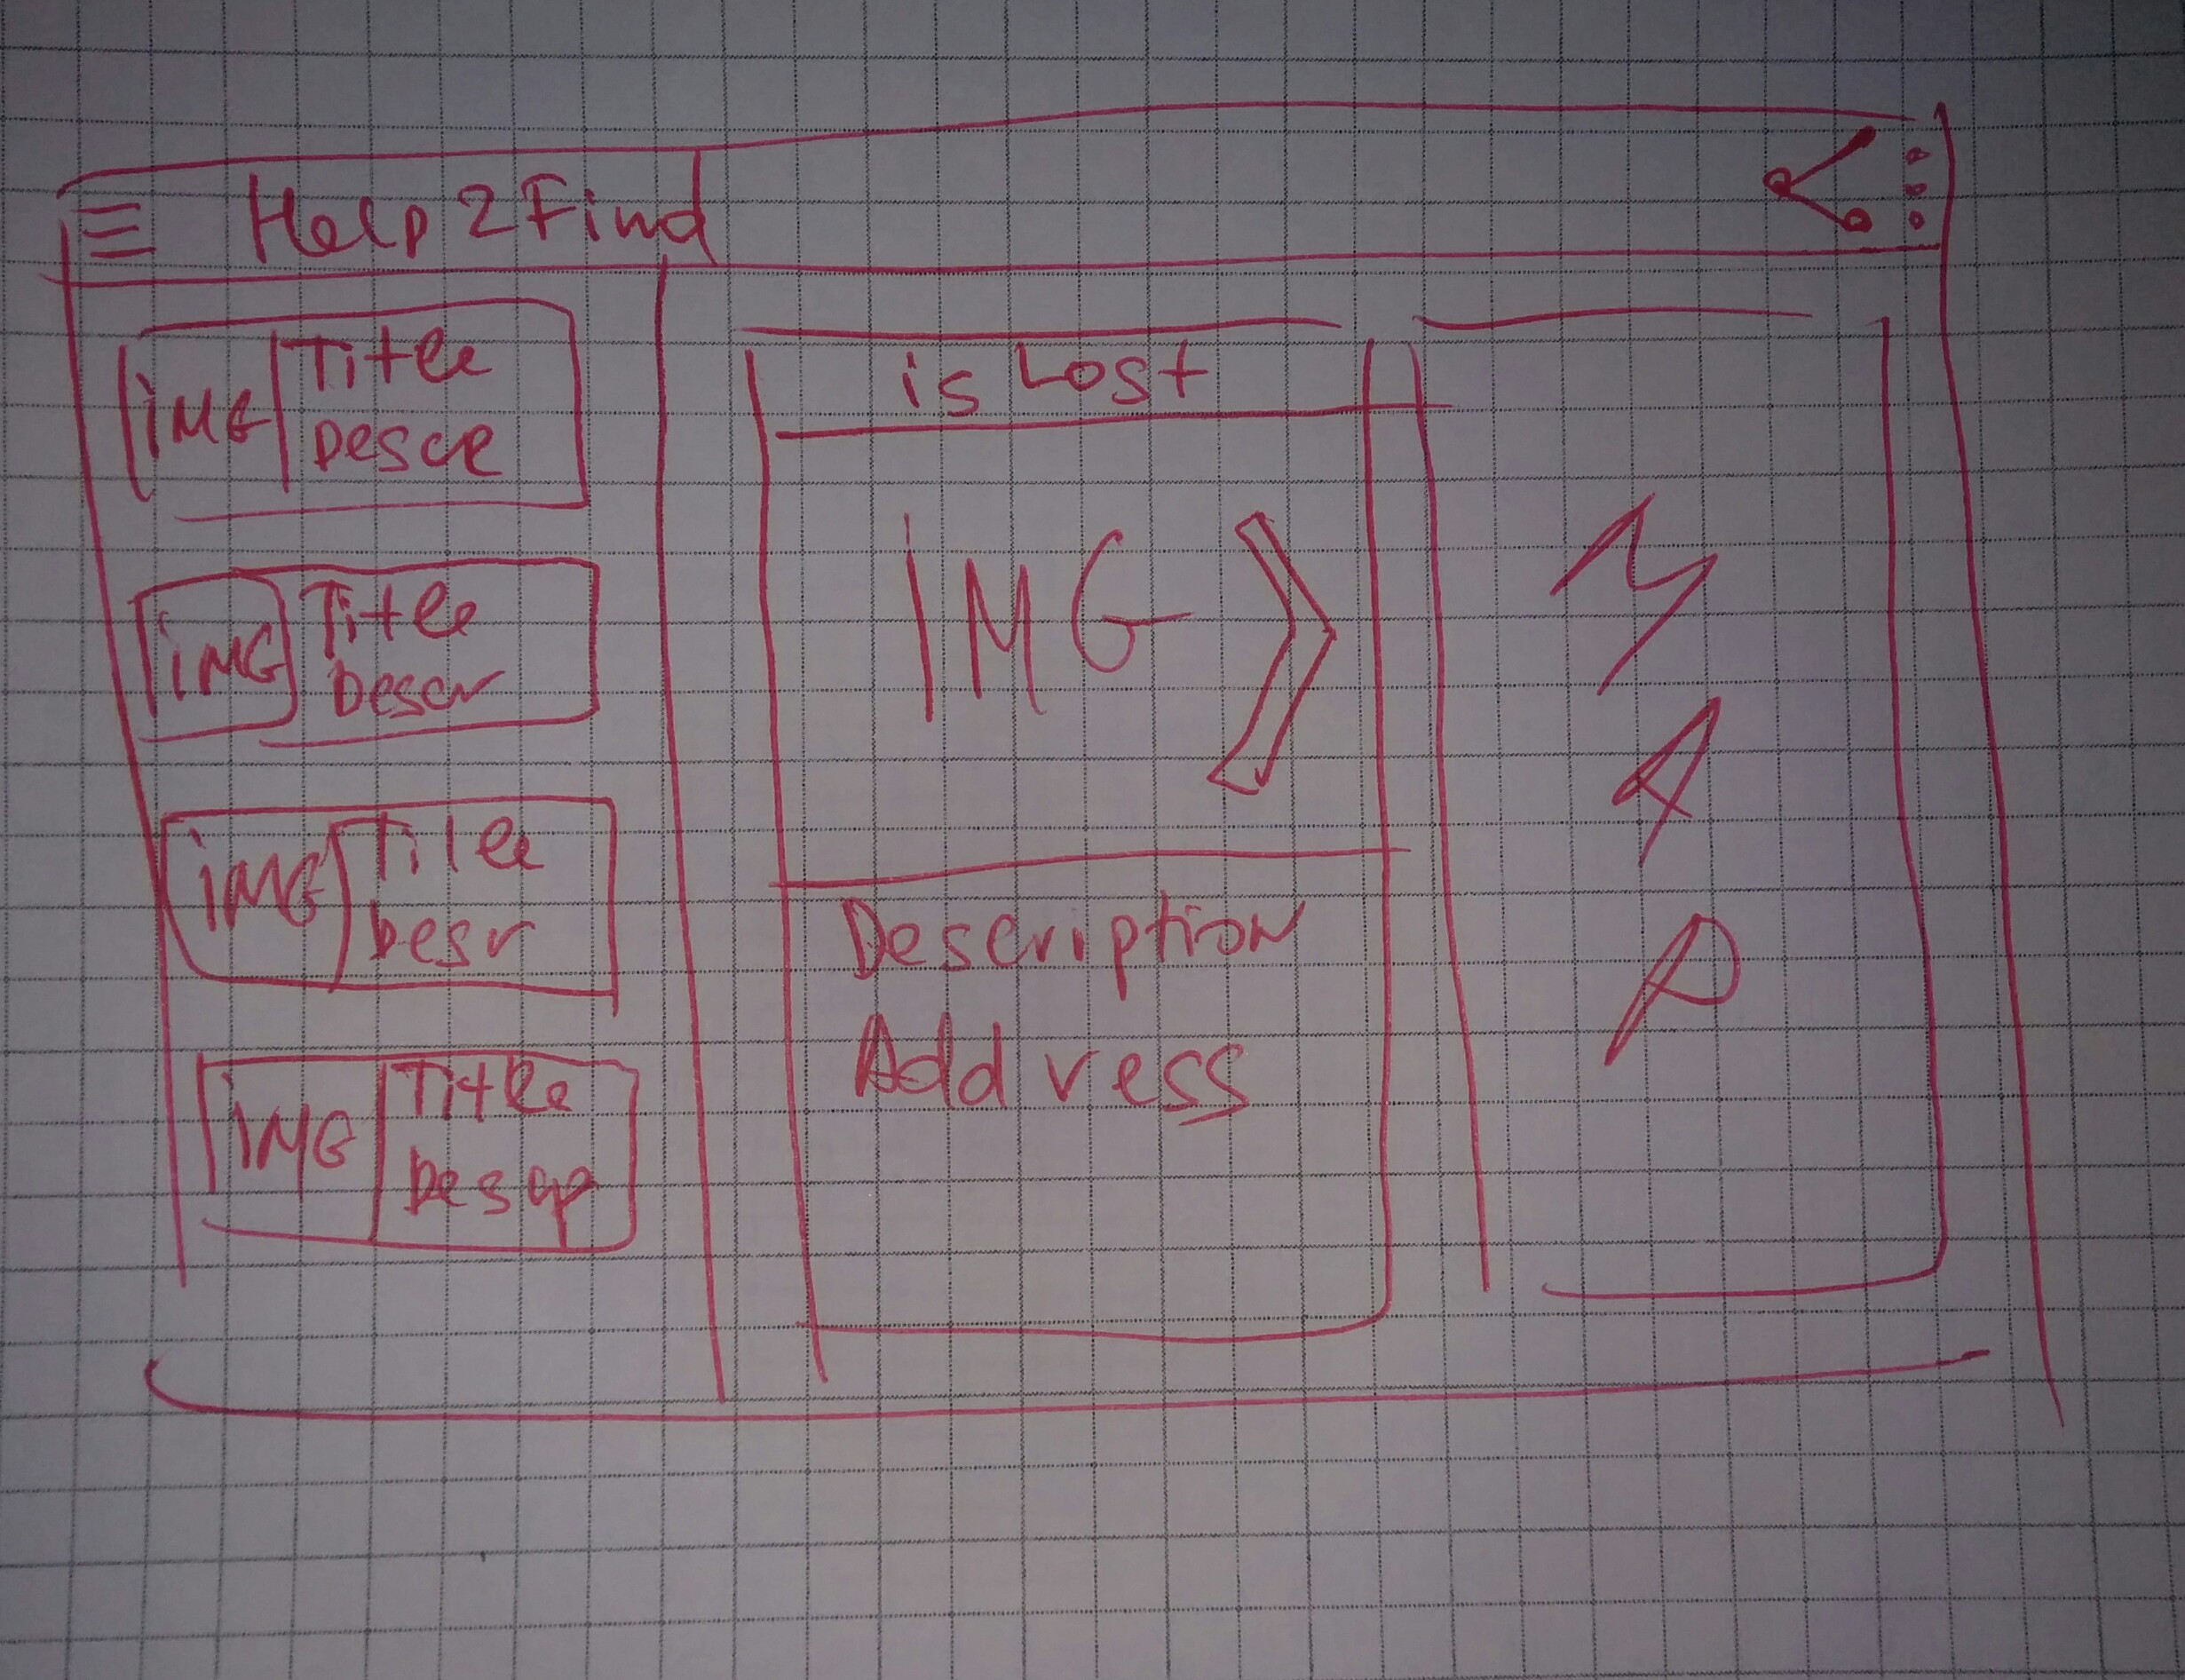 Help2Find
IMG
Title
Desce
IMG
Title
Descr
IMG
Title
Desr
IMG
Title
is Lost
IMG
Description
Address
MAP